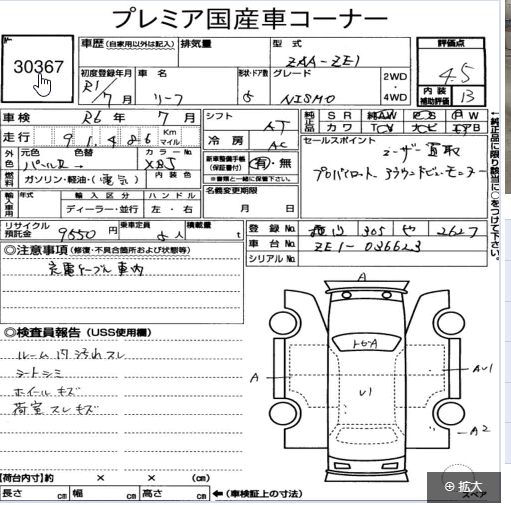 プレミア国産車コーナー
30367
車歴 (自家用以外は記入) 排気量 型式 評価点
ZAA-ZE1 4.5
初度登録年月 車名 形状・ドア数 グレード 2WD
・
4WD
R1/7月 リーフ 5 NISMO
内装
補助評価 13
車検 R6年 7月 シフト AT
純正品 SR 純AW PS 革W
カワ TV ナビ エアB
走行 91,486 Km
マイル
冷房 AC
セールスポイント
ユーザー買取
プロパイロット アラウンドビューモニター
外色 元色 色替 カラーNo.
パールII → XBJ
新車整備手帳
(保証書付) 有・無
※書類と一緒に保管下さい。
燃料 ガソリン・軽油・(電気) 内装色
名義変更期限
月 日
輸入車用 年式 輸入区分 ハンドル
ディーラー・並行 左・右
リサイクル
預託金 9550円 乗車定員 5人 積載量 t
登録No. 305 や 2627
車台No. ZE1-036623
シリアルNo.
◎注意事項(修復・不具合箇所および状態等)
充電ケーブル車内
◎検査員報告 (USS使用欄)
ルーム内汚れスレ
シートシミ
ホイールキズ
荷室スレキズ
A
トビA
A
U1
AU1
A2
【荷台内寸】約 × × (cm)
長さ cm 幅 cm 高さ cm ←(車検証上の寸法)
スペア
←純正品に限り該当に○をつけて下さい。
拡大